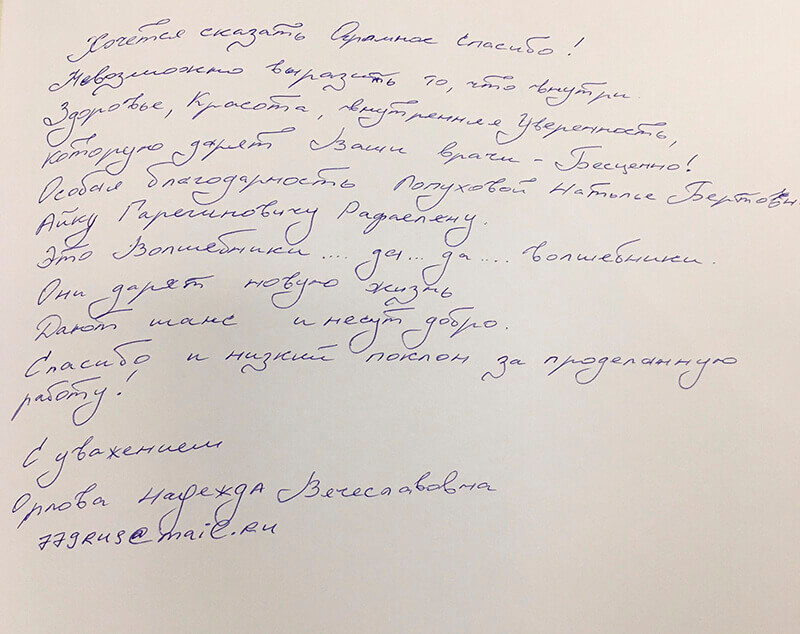 Хочется сказать Огромное спасибо!
Невозможно выразить то, что внутри.
Здоровье, Красота, внутренняя Уверенность,
которую дарят Ваши врачи - Бесценно!
Особая благодарность Лопуховой Наталье Бертовн
Айку Гарегиновичу Рафаеляну.
Это Волшебники .... да... да .... волшебники.
Они дарят новую жизнь
Дают шанс и несут добро.
Спасибо и низкий поклон за проделанную
работу!
С уважением
Орлова Надежда Вячеславовна
779rus@mail.ru